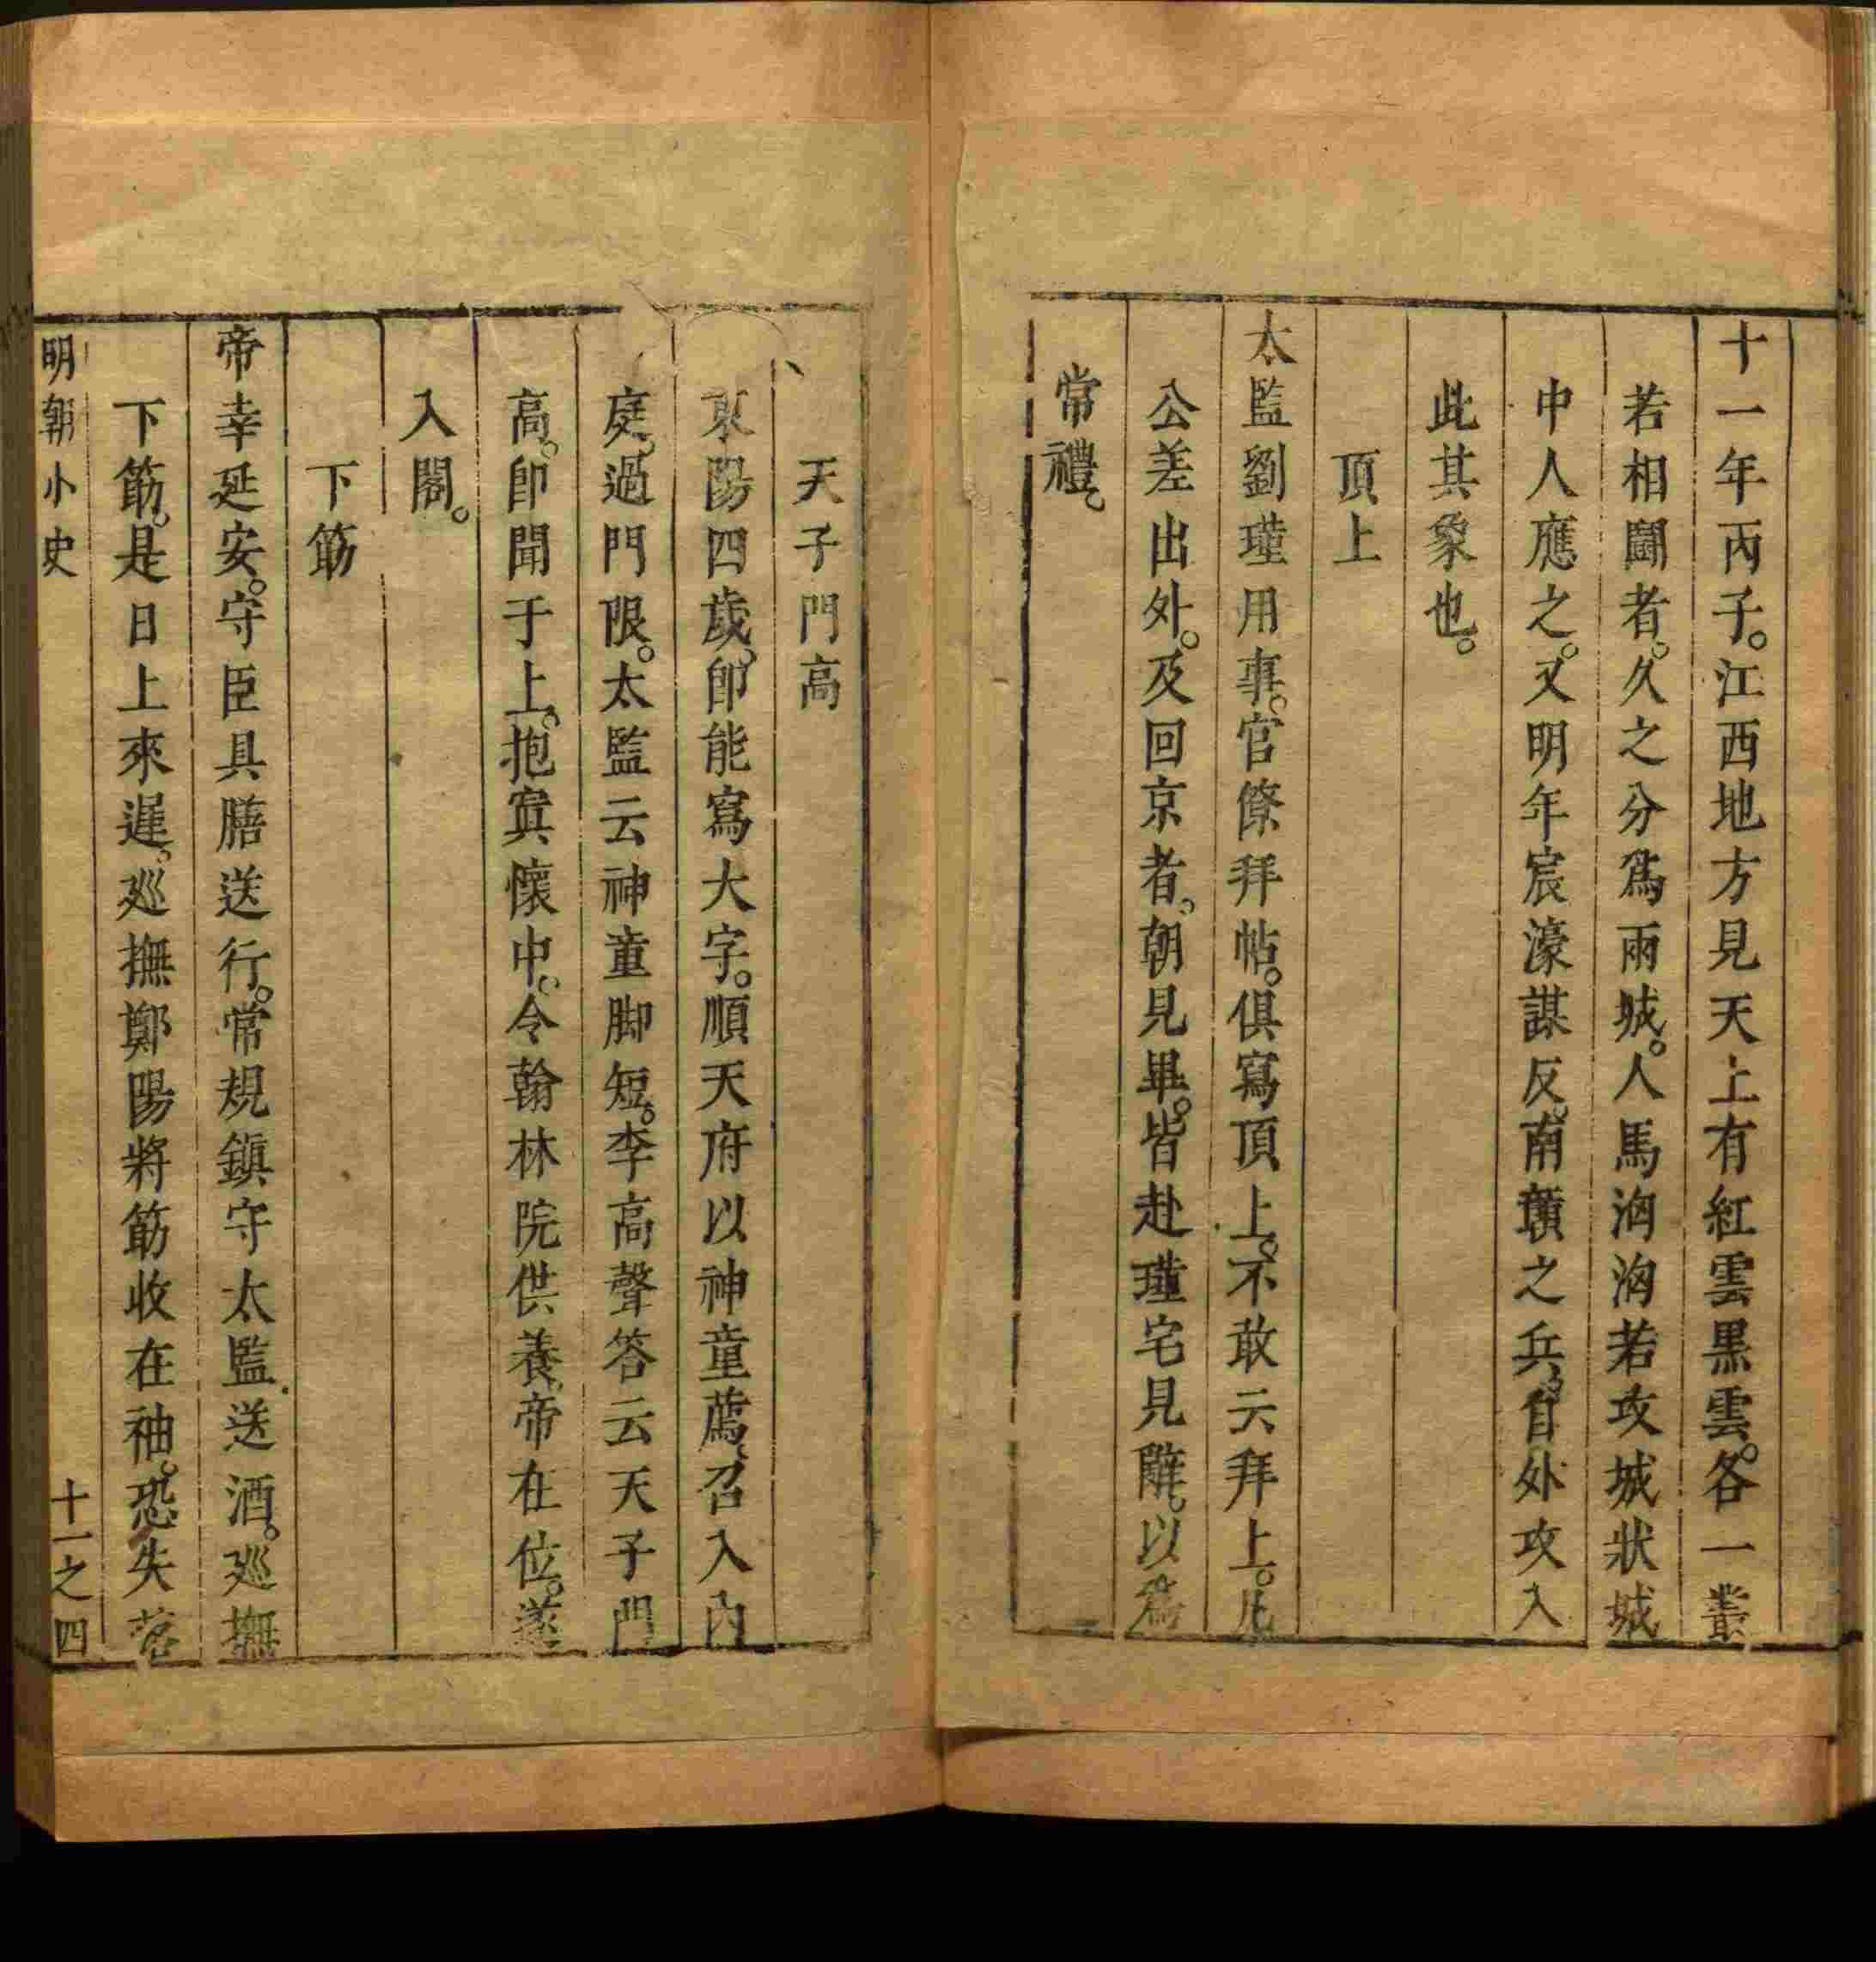 十一年丙子。江西地方見天上有紅雲黒雲。各一叢
若相鬪者。久之分爲兩城。人馬洶洶若攻城狀城
中人應之。又明年宸濠謀反。南贛之兵。自外攻入
此其象也。
頂上
太監劉瑾用事。官僚拜帖。俱寫頂上。不敢云拜上。凡
公差出外。及回京者。朝見畢。皆赴瑾宅見辭。以爲
常禮。
天子門高
東陽四歲。卽能寫大字。順天府以神童薦。召入內
庭。過門限。太監云神童脚短。李高聲答云天子門
高。卽聞于上。抱寘懷中。令翰林院供養。帝在位。遂
入閣。
下筯
帝幸延安。守臣具膳送行。常規鎮守太監送酒。巡撫
下筯。是日上來遲。巡撫鄭陽將筯收在袖。恐失落
明朝小史
十一之四